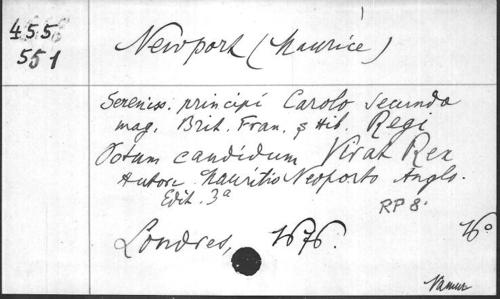 455
551
Newport (Maurice)
Sereniss. principi Carolo Secundo
mag. Brit. Fran. & Hib. Regi
Votum candidum Vivat Rex
Autore Mauritio Neoporto Anglo.
Edit. 3a
RP 8.
Londres, 1676. 16o
Namur